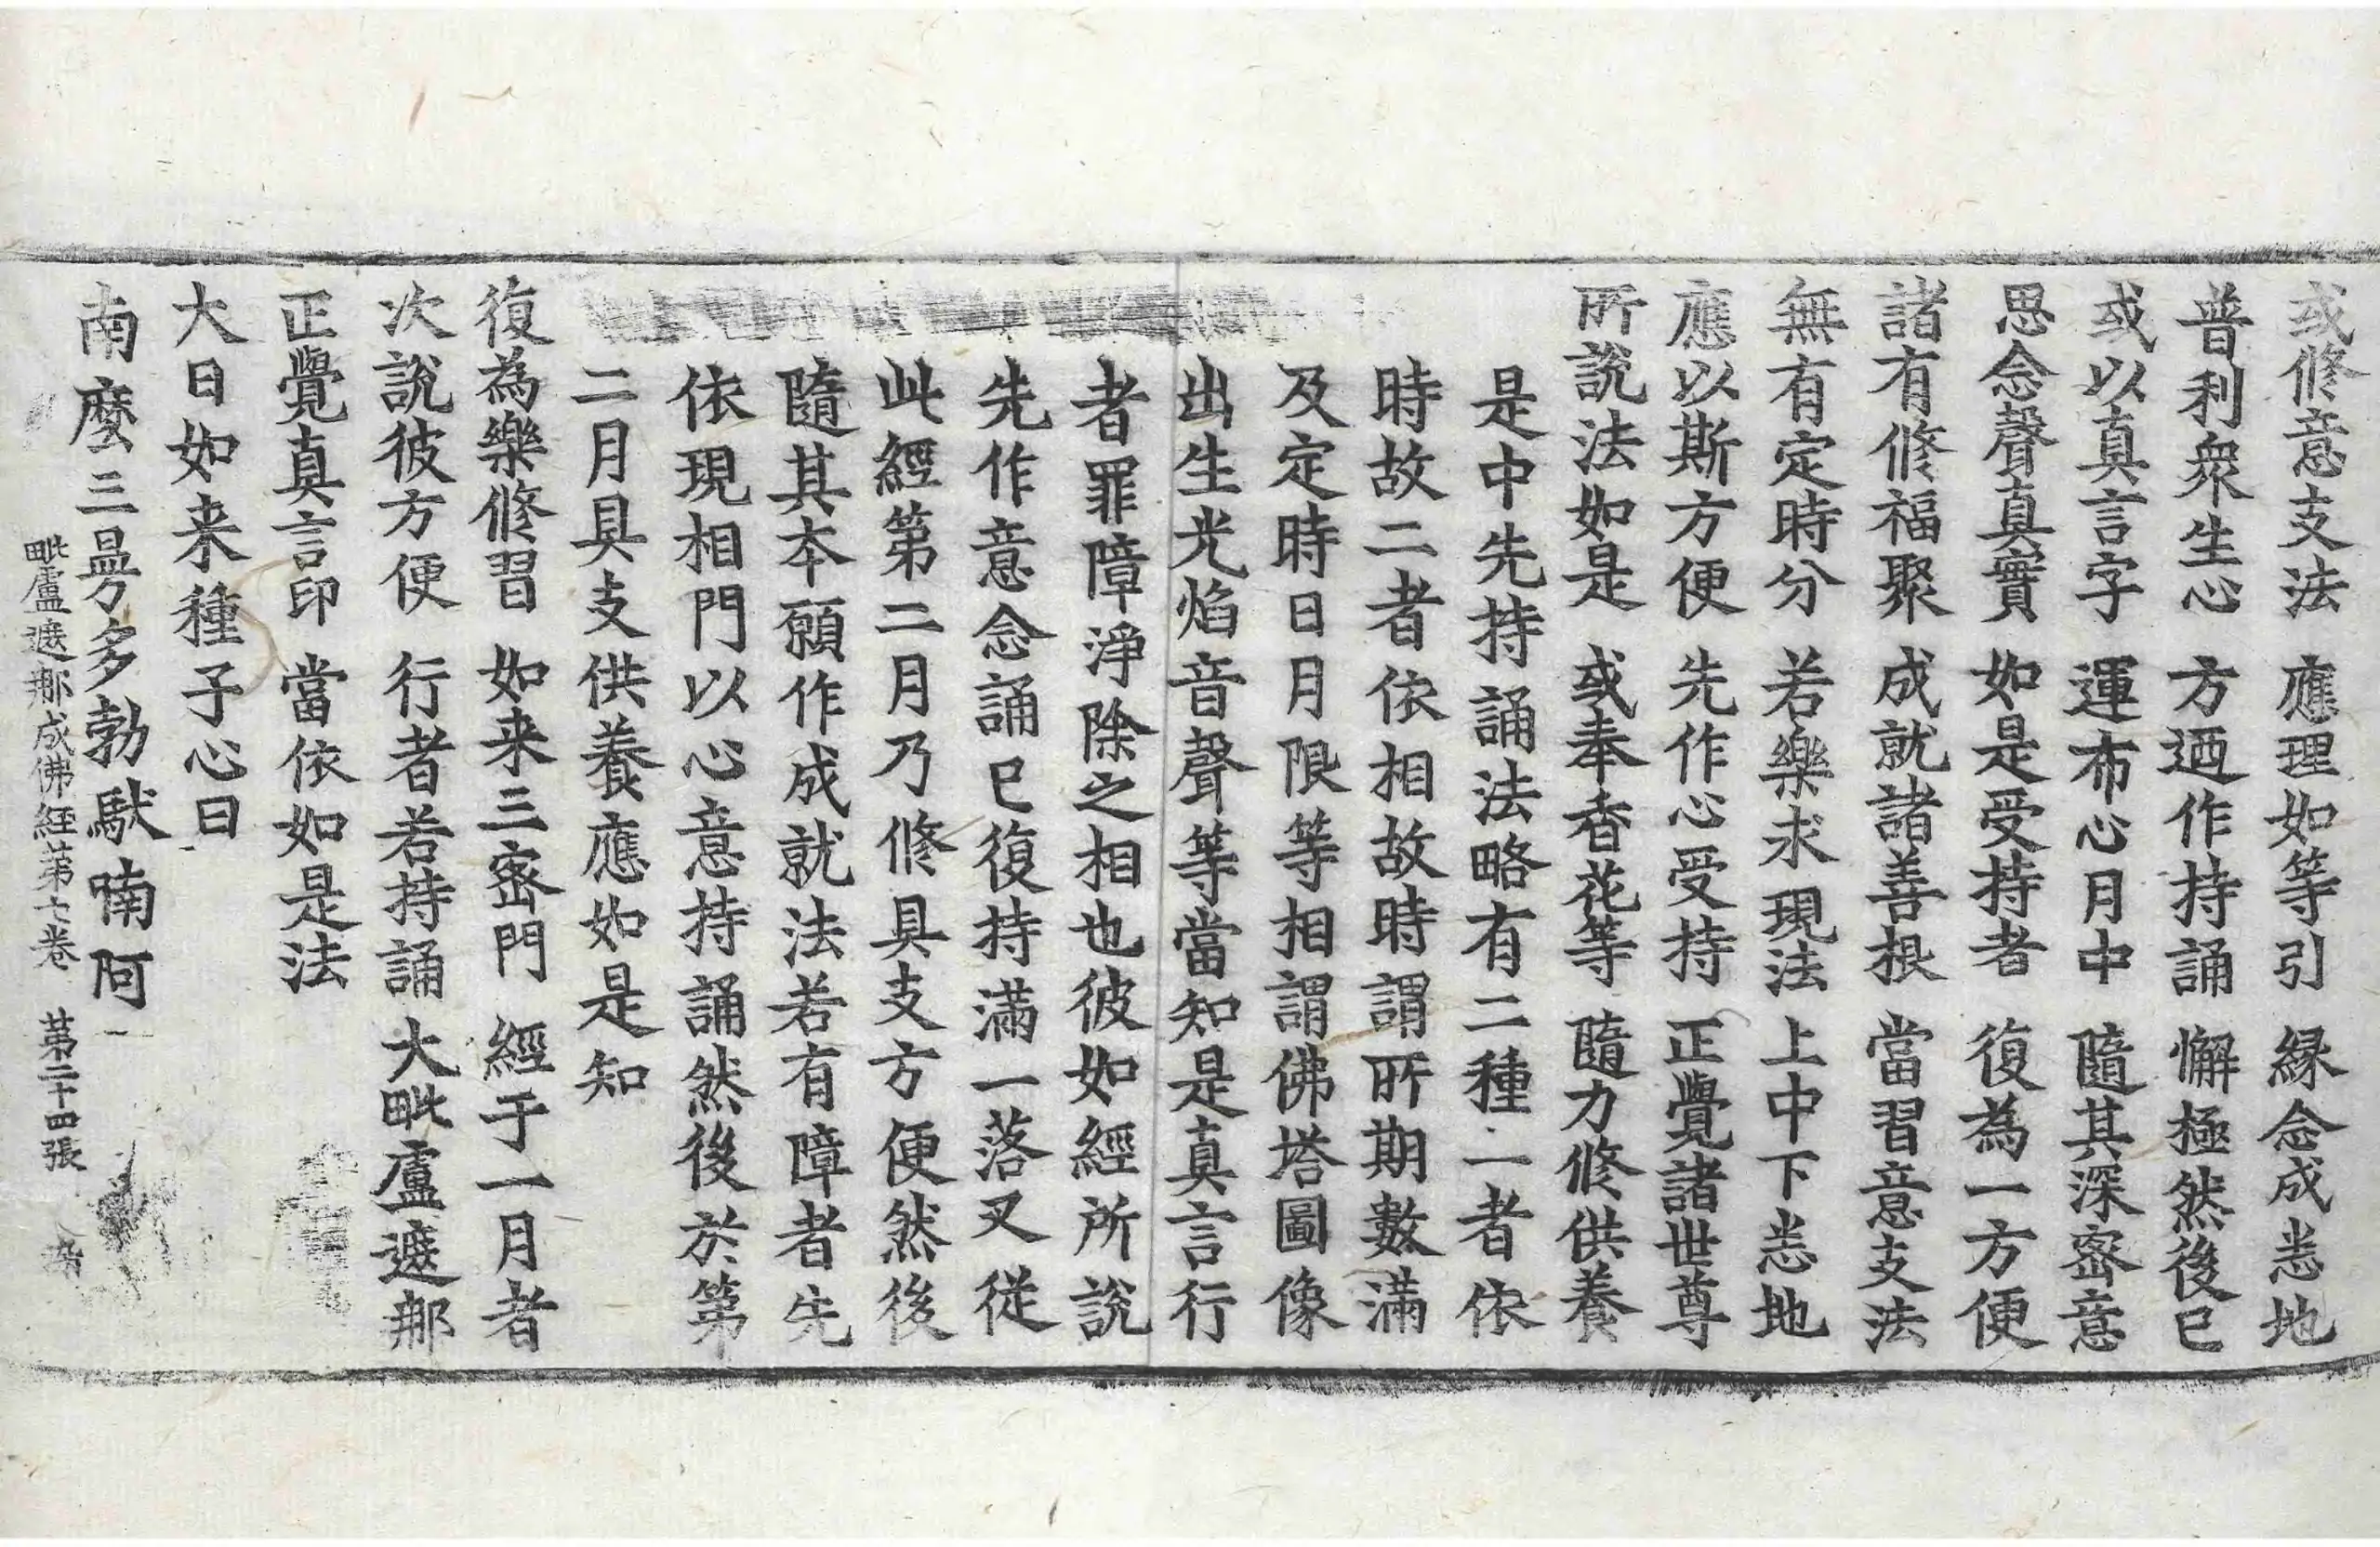 或修意支法　應理如等引　緣念成悉地
普利衆生心　方迺作持誦　懈極然後已
或以真言字　運布心月中　隨其深密意
思念聲真實　如是受持者　復為一方便
諸有修福聚　成就諸善根　當習意支法
無有定時分　若樂求現法　上中下悉地
應以斯方便　先作心受持　正覺諸世尊
所說法如是　或奉香花等　隨力修供養
是中先持誦法略有二種一者依
時故二者依相故時謂所期數滿
及定時日月限等相謂佛塔圖像
出生光焰音聲等當知是真言行
者罪障淨除之相也彼如經所說
先作意念誦已復持滿一落叉從
此經第二月乃修具支方便然後
隨其本願作成就法若有障者先
依現相門以心意持誦然後於第
二月具支供養應如是知
復為樂修習　如来三密門　經于一月者
次說彼方便　行者若持誦　大毗盧遮那
正覺真言印　當依如是法
大日如来種子心曰
南麼三曼多勃馱喃阿
毗盧遮那成佛經第七卷　第二十四張